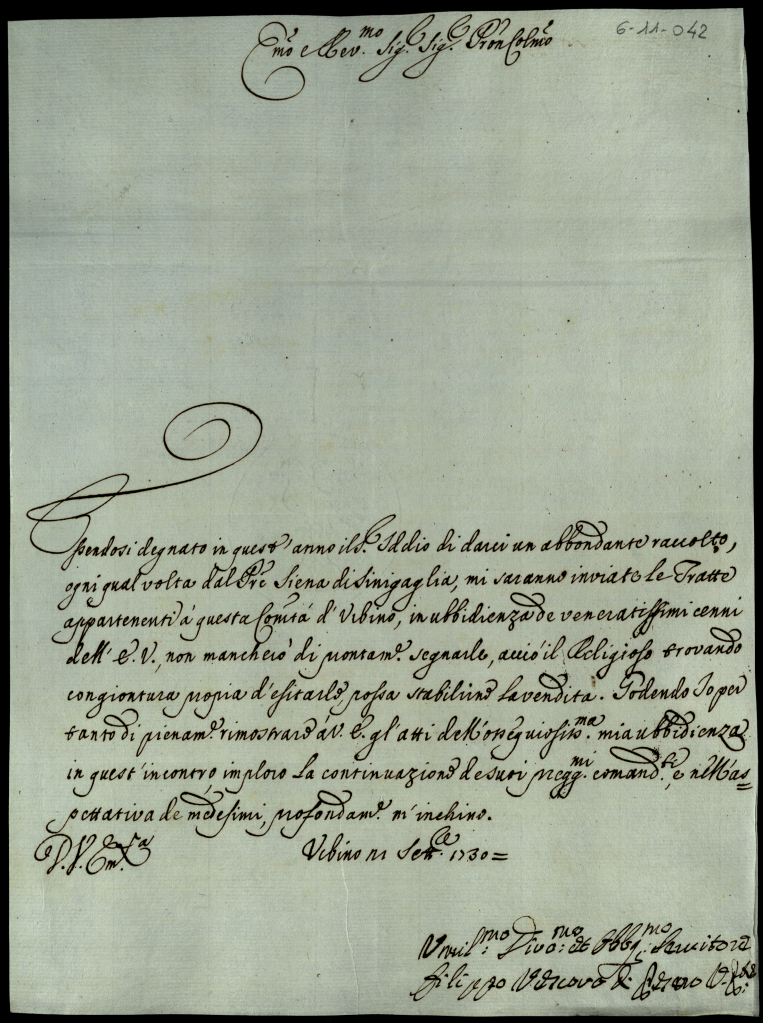 6-11-042
Em̃o e Rev.mo Sig.r Sig.r Prõn Colmo
Essendosi degnato in quest'anno il S.r Iddio di darci un abbondante raccolto,
ogni qual volta dal Prẽ Siena di Sinigaglia, mi saranno inviate le Tratte
appartenenti à questa Com̃tà d'Vrbino, in ubbidienza de veneratissimi cenni
dell'E.V., non mancherò di prontam.e segnarle, acciò il Religioso trovando
congiontura propria d'esitarle, possa stabilirne la vendita. Godendo Io per
tanto di pienam.e rimostrare à V.E. gl'atti dell'ossequiosiss.ma mia ubbidienza
in quest'incontro, imploro la continuazione de suoi pregg.mi comand.ti, e nell'as=
pettativa de medesimi, profondam.e m'inchino.
D.V.Em.za
Vrbino Sett.e 1730=
Vmil.mo Divo.mo et Obblig.mo Servitore
Filippo Vescovo di Pesaro V.